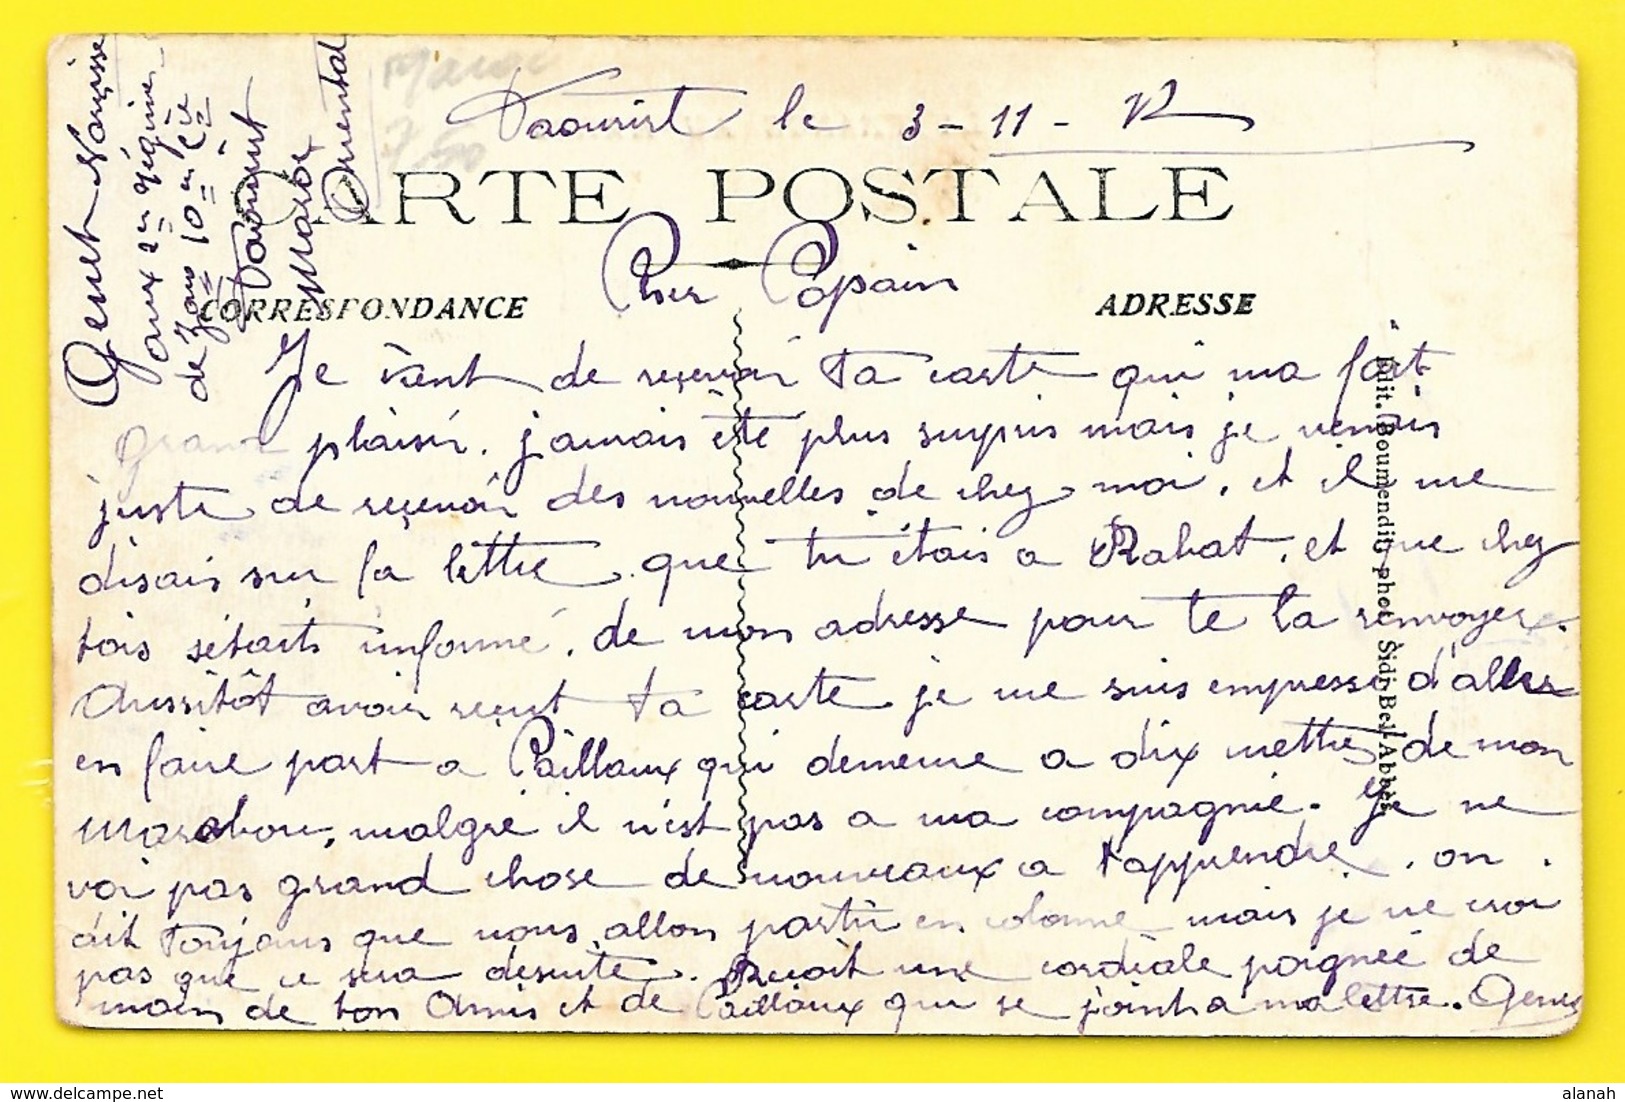 Maroc
7,50
Taourirt le 3-11-12
CARTE POSTALE
CORRESPONDANCE
ADRESSE
Genet Narcisse
aux 2e
de 10e Cie
Taourirt
Maroc
Oriental
Cher Copain
Je vient de reçevoir ta carte qui ma fait
grand plaisir. jamais été plus surpris mais je venais
juste de reçevoir des nouvelles de chez moi. et il me
disais sur la lettre que tu étais a Rabat. et que chez
tois sétaits informé. de mon adresse pour te la renvoyer.
Aussitôt avoir reçut ta carte je me suis empressé d'aller
en faire part a Paillaux qui demeure a dix mettre de mon
Marabou, malgré il n'est pas a ma compagnie. Je ne
voi pas grand chose de nouveaux a t'apprendre. on
dit toujours que nous allon partir en colonne mais je ne croi
pas que ce sera desuite. Reçoit une cordiale poignée de
main de ton Amis et de Paillaux qui se joint a ma lettre. Genet
Edit. Boumendil, phot. Sidi-Bel-Abbès
alanah